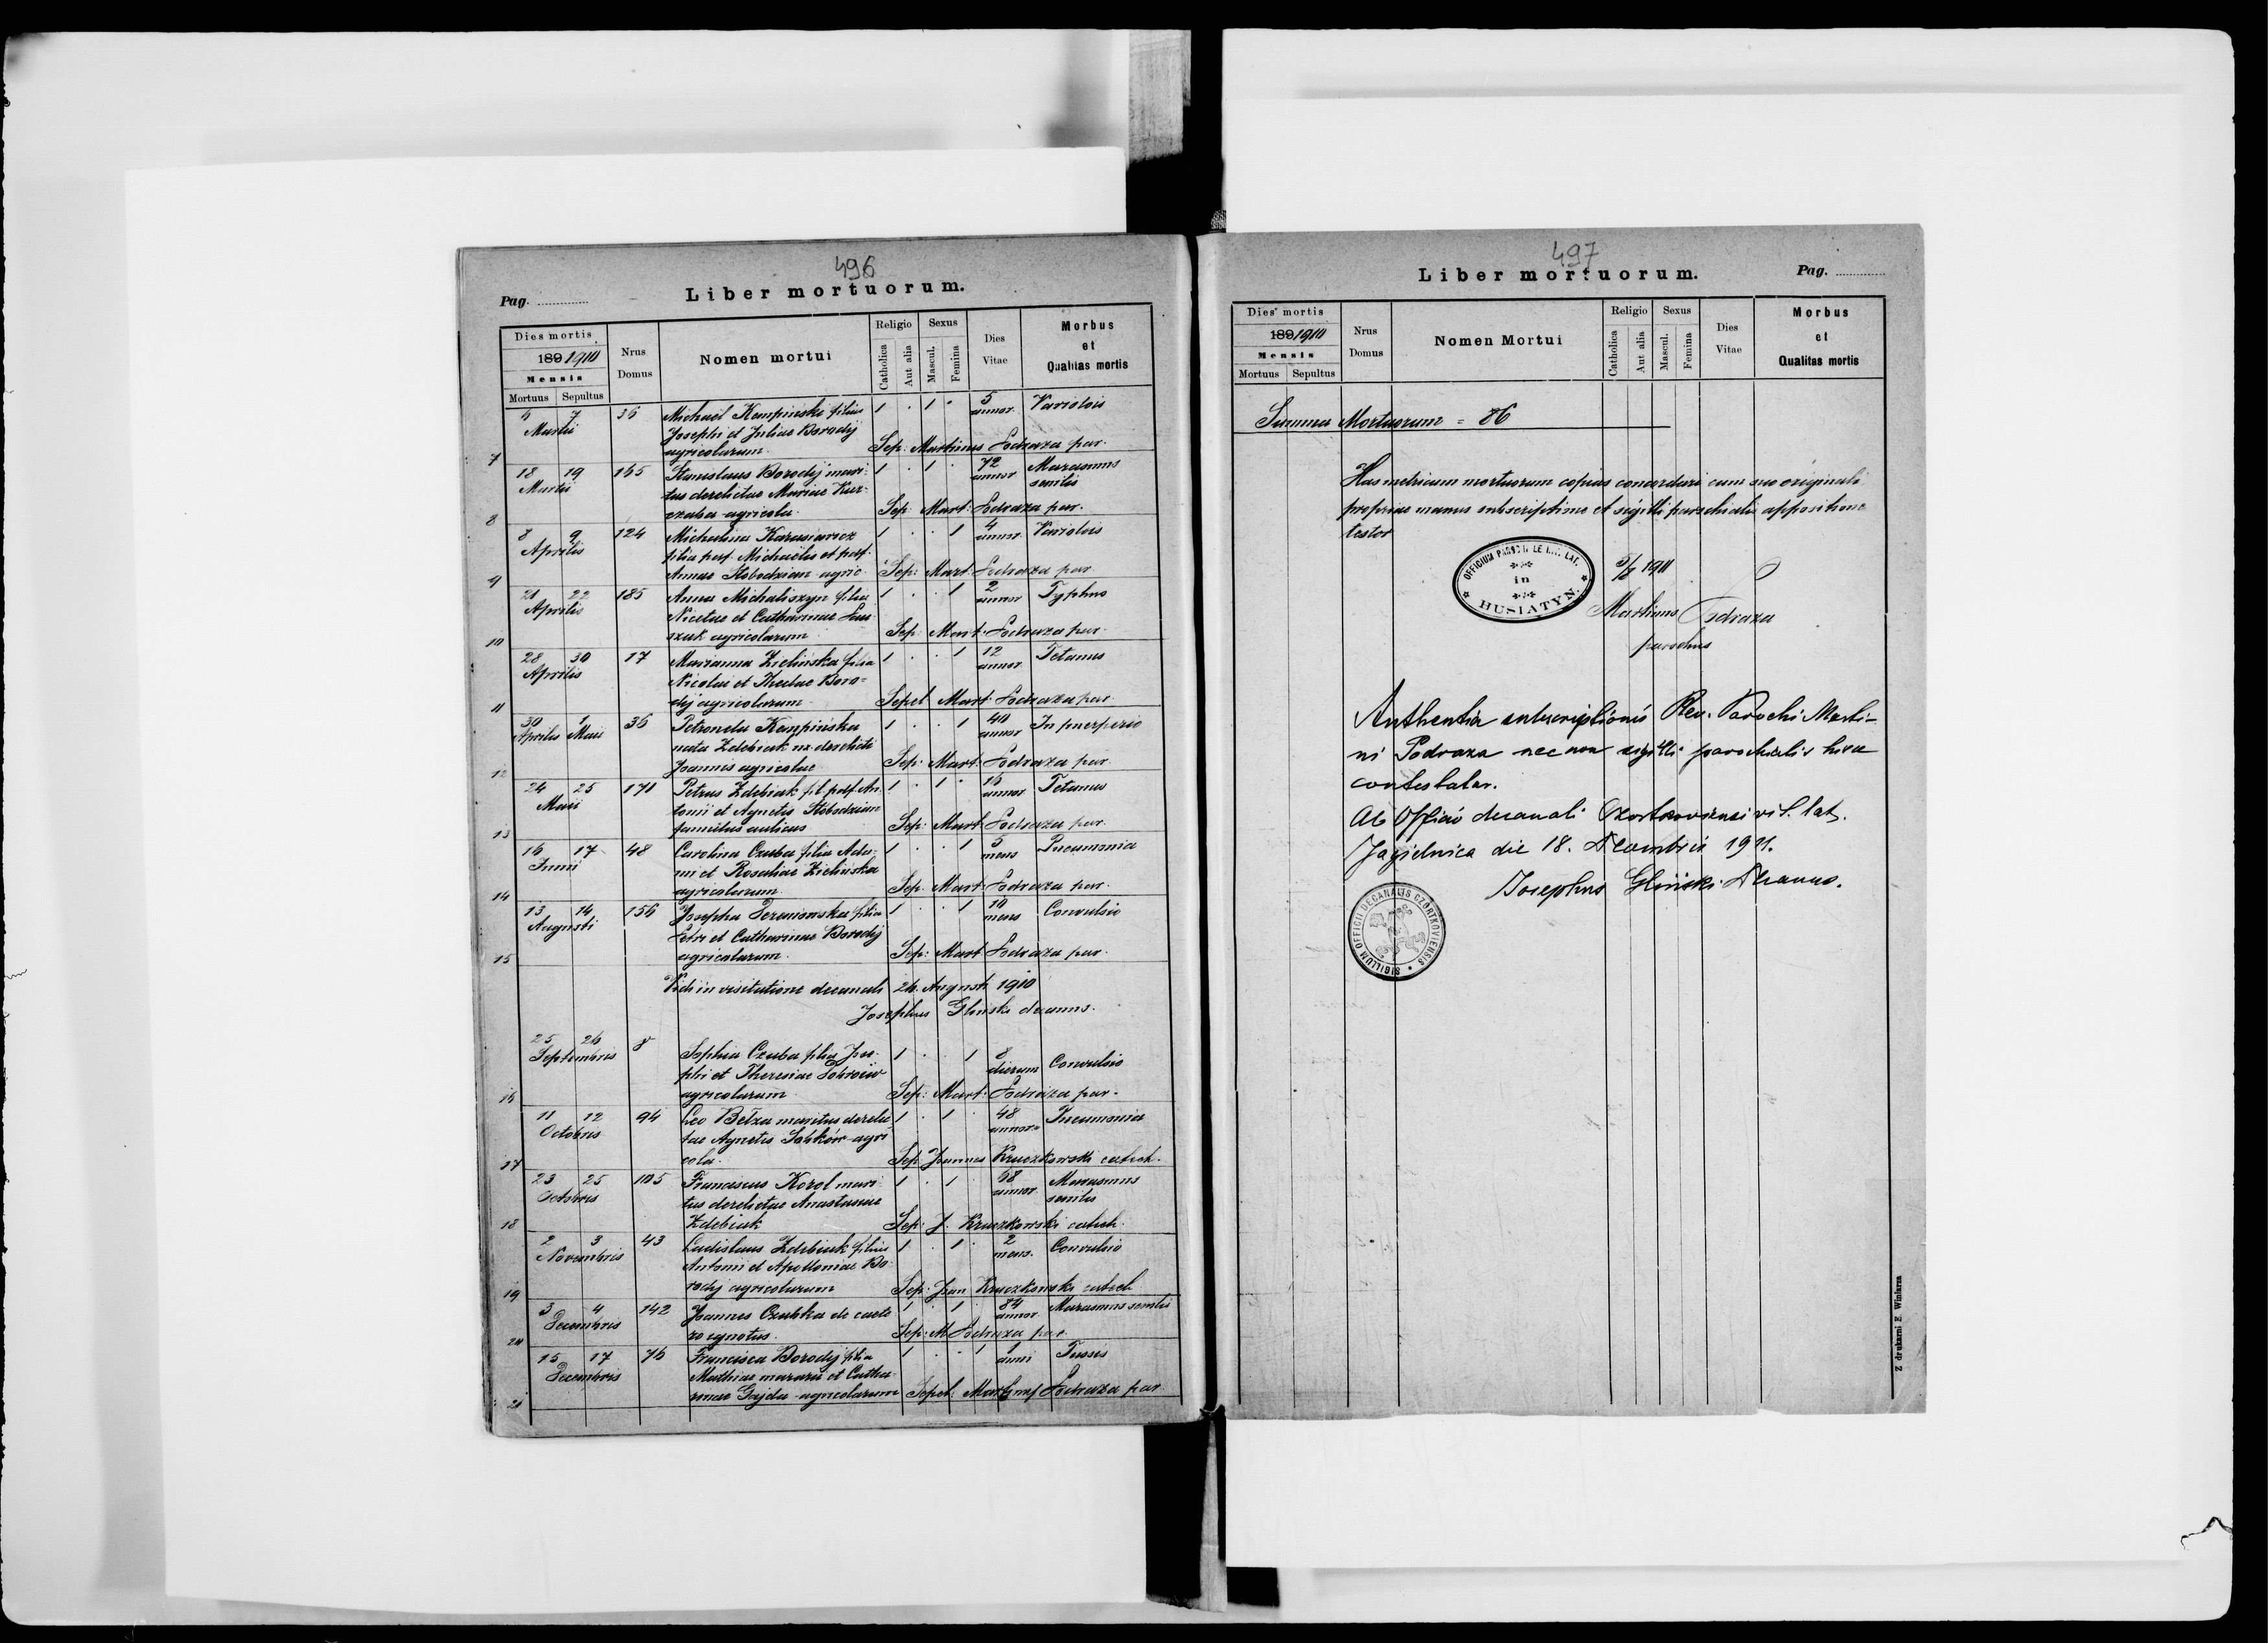 496
Pag.
Liber mortuorum.
Dies mortis
189 1910
Mensis
Mortuus Sepultus
Nrus Domus
Nomen mortui
Religio
Catholica
Aut alia
Sexus
Mascul.
Femina
Dies Vitae
Morbus et Qualitas mortis
7 6 7 36 Michael Kempiński filius 1 . 1 . 5 Variolois
Martii Josephi et Juliae Borodij annor.
agricolarum Sep: Martinus Podraza par.
8 18 19 165 Stanislaus Borodij mari- 1 . 1 . 72 Marasmus
Martii tus derelictae Mariae annor senilis
agricola. Sep. Mart: Podraza par.
9 8 9 124 Michalina Karasiewicz 1 . . 1 4 Variolois
Aprilis filia post. Michaelis et post. annor
Annae Słobodzian agric. Sep: Mart. Podraza par
10 21 22 185 Anna Michaliszyn filia 1 . . 1 2 Typhus
Aprilis Nicetae et Catharinae annor
agricolarum Sep. Mart. Podraza par.
11 28 30 17 Marianna Zielińska filia 1 . . 1 12 Tetanus
Aprilis Nicolai et Theclae Boro= annor
dij agricolarum Sepel Mart. Podraza par
12 30 1 36 Petronela Kempińska 1 . . 1 40 In puerperio
Aprilis Maii nata Zdebiak ux. derelicti annor
Joannis agricolae Sep: Mart. Podraza par.
13 24 25 171 Petrus Zdebiak fil. post. An- 1 . 1 . 16 Tetanus
Maii tonii et Agnetis Słobodzian annor
famulus aulicus Sep: Mart. Podraza par.
14 16 17 48 Carolina Czuba filia Ada- 1 . . 1 5 Pneumonia
Junii mi et Rosaliae Zielińska mens
agricolarum Sep. Mart. Podraza par.
15 13 14 156 Josepha filia 1 . . 1 10 Convulsio
Augusti Petri et Catharinae Borodij mens
agricolarum. Sep: Mart Podraza par.
Vidi in visitatione decanali 24. Augusti 1910
Josephus Gliński decanus.
16 25 26 8 Sophia Czuba filia Jose- 1 . . 1 8 Convulsio
Septembris phi et Theresiae dierum
agricolarum Sep: Mart: Podraza par.
17 11 12 94 Leo Betza maritus derelic- 1 . 1 . 48 Pneumonia
Octobris tae Agnetis agri- annor
cola. Sep. Joannes Kruczkowski catech.
18 23 25 105 Franciscus Korol mari- 1 . 1 . 68 Marasmus
Octobris tus derelictae Anastasiae annor senilis
Zdebiak Sep: J. Kruczkowski catech.
19 2 3 43 Ladislaus Zdebiak filius 1 . 1 . 2 Convulsio
Novembris Antonii et Apolloniae Bo- mens.
rodij agricolarum Sep: Joan Kruczkowski catech
20 3 4 142 Joannes Czubka de caete- 1 . 1 . 84 Marasmus senilis
Decembris ro ignotus. annor
Sep: M Podraza par.
21 15 17 76 Francisca Borodij filia 1 . . 1 1 Tussis
Decembris Mathiae murarii et Catha- anni
rinae Gajda agricolarum Sepel: Martinus Podraza par
497
Liber mortuorum.
Pag.
Dies mortis
189 1910
Mensis
Mortuus Sepultus
Nrus Domus
Nomen Mortui
Religio
Catholica
Aut alia
Sexus
Mascul.
Femina
Dies Vitae
Morbus et Qualitas mortis
Summa Mortuorum = 86
Has metricum mortuorum copias concordari cum suo originali
propriae manus subscriptione et sigilli parochialis appositione
testor
OFFICIUM LAT. in HUSIATYN
1911
Martinus Podraza
parochus
Authentia subscriptionis Rev. Parochi Marti-
ni Podraza nec non sigilli parochialis hisce
contestatur.
Ab Officio decanali Czortkoviensi rit. lat.
Jagielnica die 18. Decembris 1911.
Josephus Gliński Decanus.
SIGILLUM OFFICII DECANALIS CZORTKOVIENSIS
Z drukarni E. Winiarza